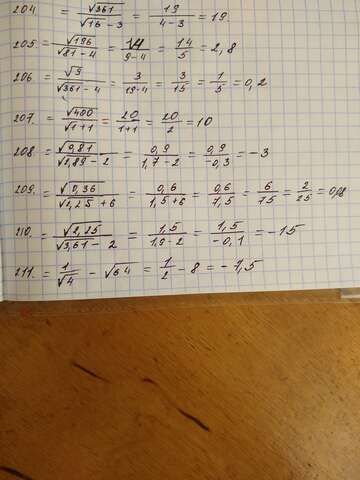 204. = √361 / √16 - 3 = 19 / 4 - 3 = 19.
205 = √196 / √81 - 4 = 14 / 9 - 4 = 14 / 5 = 2,8
206 = √9 / √361 - 4 = 3 / 19 - 4 = 3 / 15 = 1 / 5 = 0,2
207. = √400 / √1 + 1 = 20 / 1 + 1 = 20 / 2 = 10
208. = √0,81 / √2,89 - 2 = 0,9 / 1,7 - 2 = 0,9 / -0,3 = -3
209. = √0,36 / √2,25 + 6 = 0,6 / 1,5 + 6 = 0,6 / 7,5 = 6 / 75 = 2 / 25 = 0,08
210. = √2,25 / √3,61 - 2 = 1,5 / 1,9 - 2 = 1,5 / -0,1 = -15
211. = 1 / √4 - √64 = 1 / 2 - 8 = -7,5